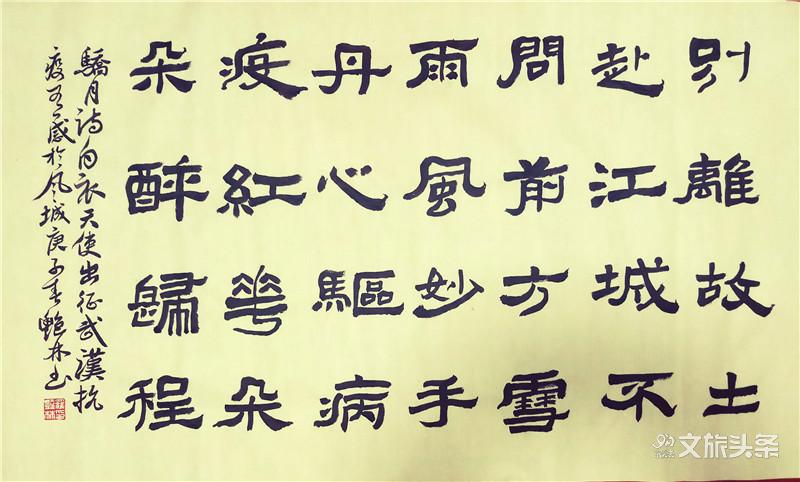 別離故土
赴江城不
問前方雪
雨風妙手
丹心驅病
疫紅花朵
朵醉歸程
驕月詩白衣天使出征武漢抗
疫有感於風城庚子春艷林书
文旅头条